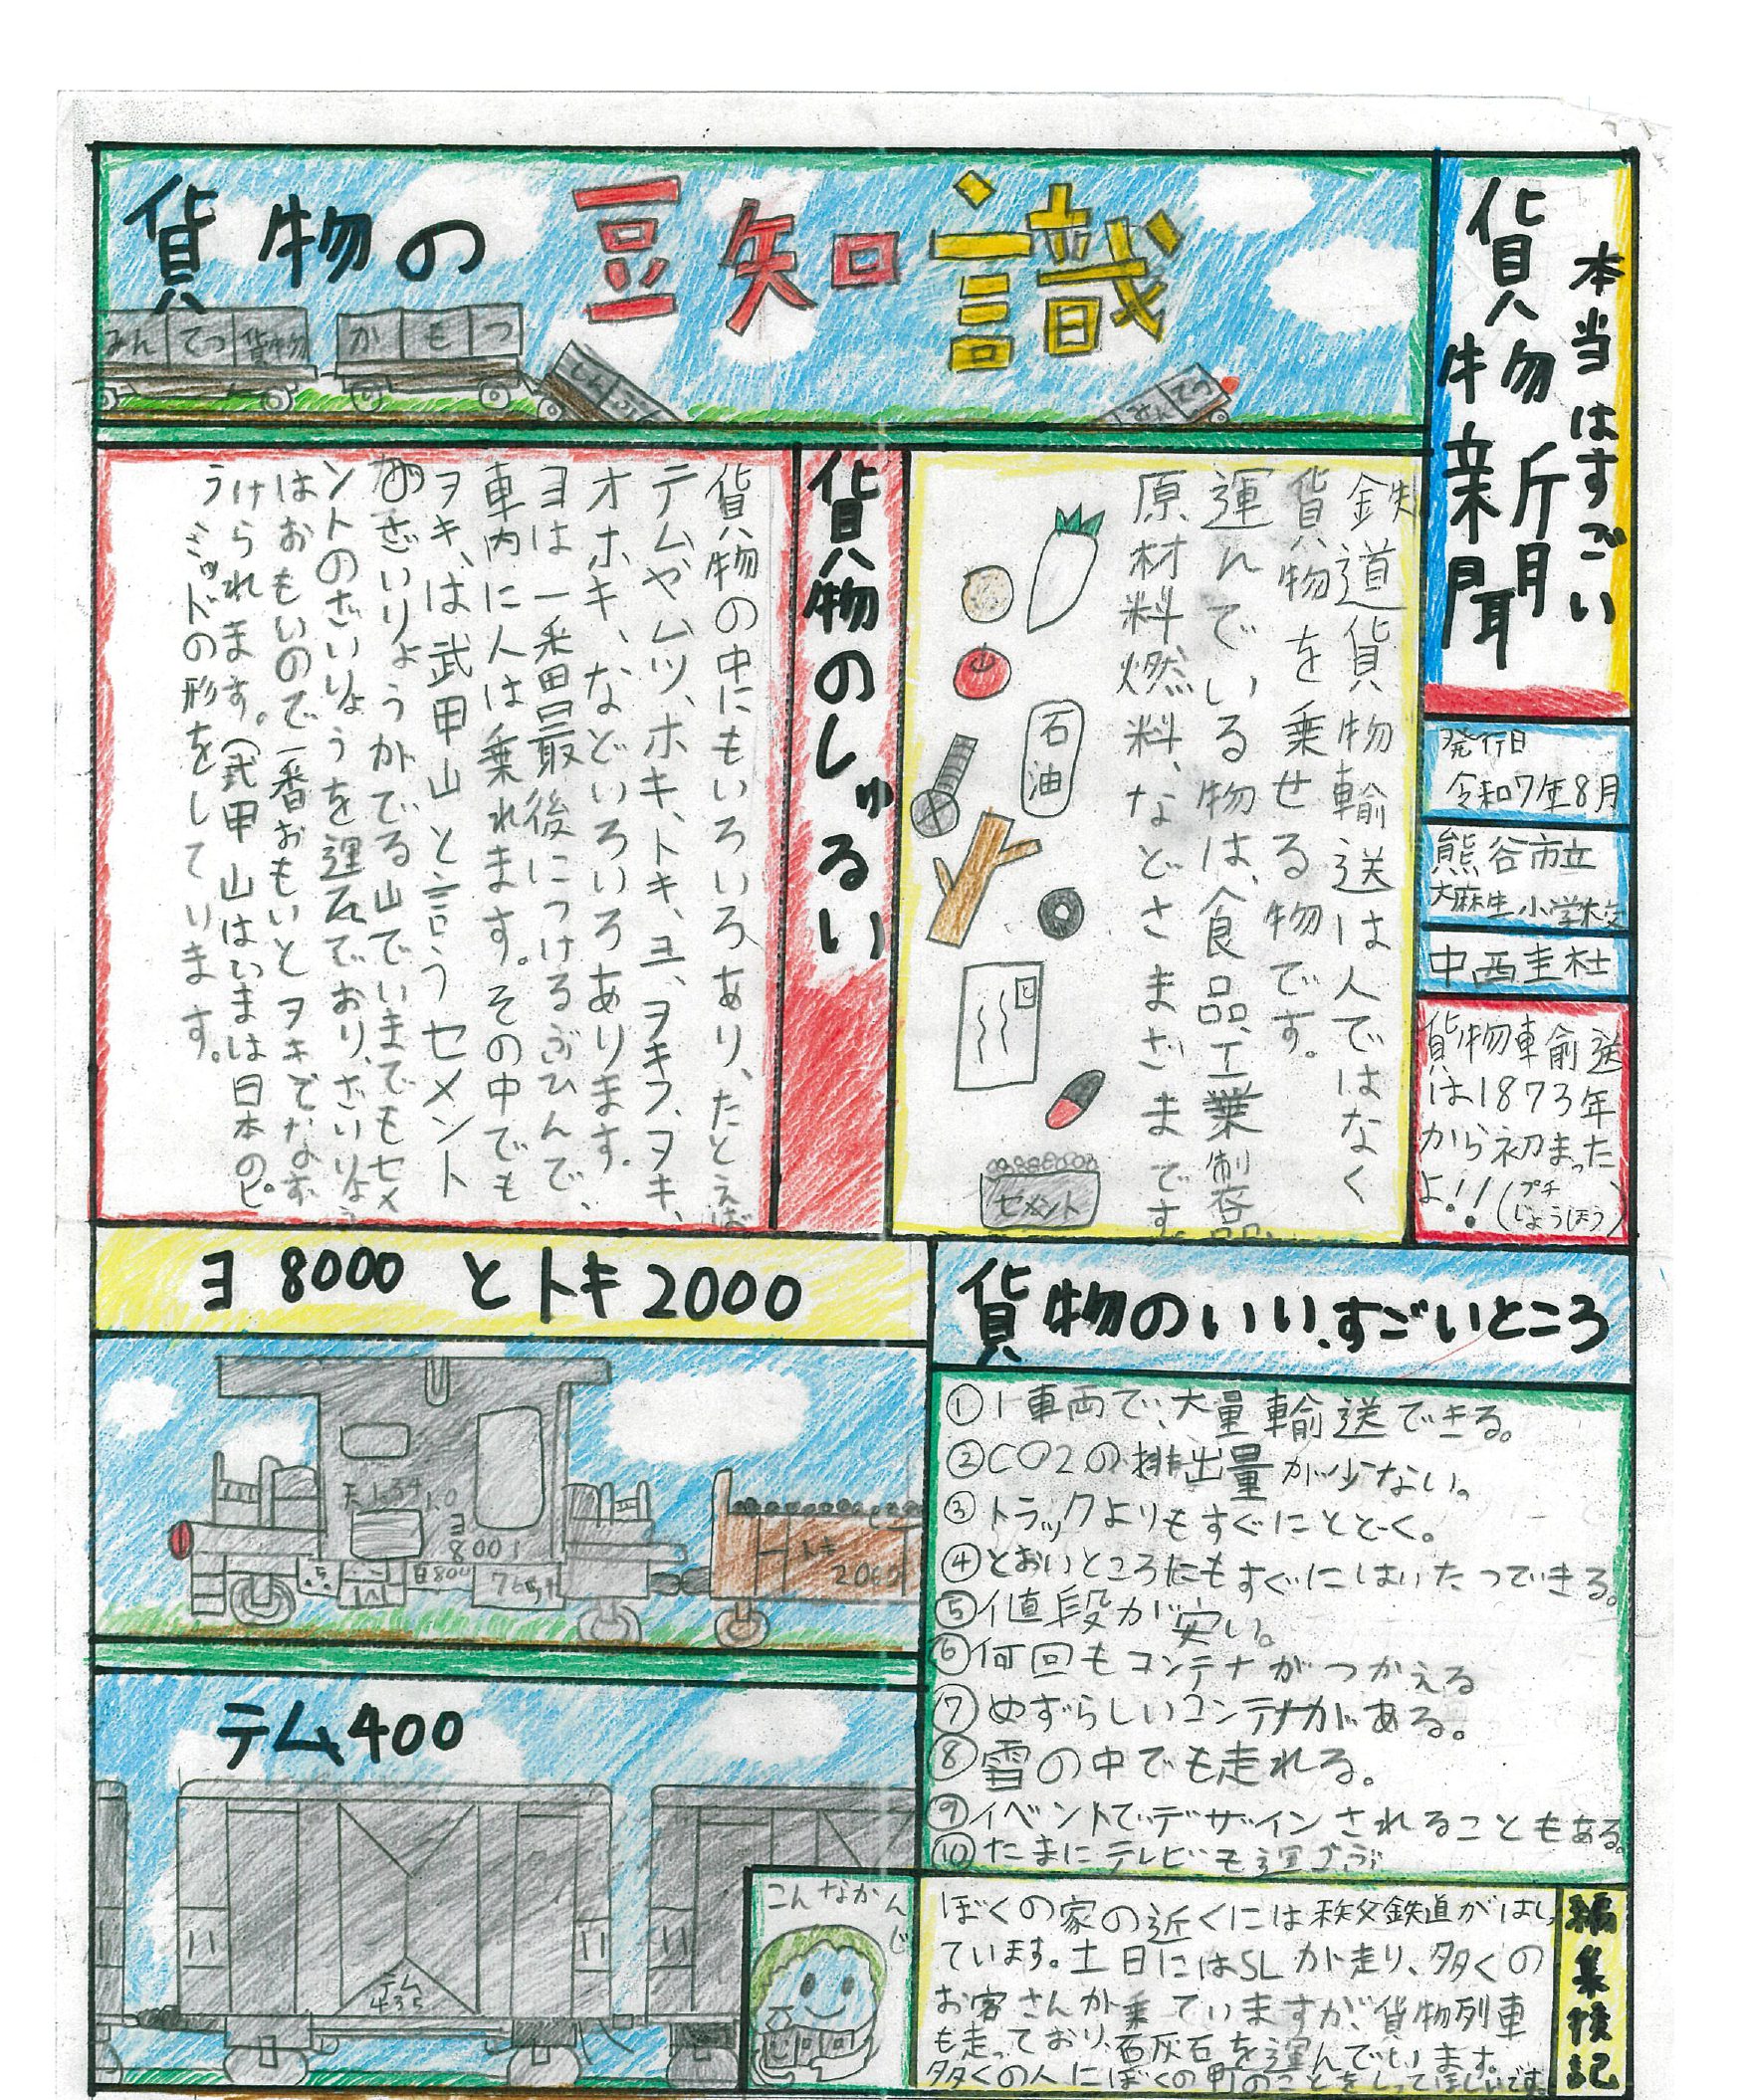 本当はすごい
貨物新聞
発行日
令和7年8月
熊谷市立
大麻生小学校
中西圭杜
貨物車輸送
は1873年
から初まった
よ!!(プチじょうほう)
貨物の豆知識
みんてつ貨物
かもつ
みんてつ
鉄道貨物輸送は人ではなく
貨物を乗せる物です。
運んでいる物は、食品、工業製品、
原材料燃料、などさまざまです。
石油
セメント
貨物のしゅるい
貨物の中にもいろいろあり、たとえば
テムやムツ、ホキ、トキ、ヨ、ヲキフ、ヲキ、
オホキ、などいろいろあります。
ヨは一番最後につけるぶひんで、
車内に人は乗れます。その中でも
ヲキ、は武甲山と言うセメント
のざいりょうがでる山でいまでもセメ
ントのざいりょうを運んでおり、ざいりょう
はおもいので一番おもいとヲキでなず
けられます。(武甲山はいまは日本のピ
ラミッドの形をしています。
ヨ8000とトキ2000
ヨ
8001
トキ
200
テム400
テム
435
貨物のいい、すごいところ
①1車両で、大量輸送できる。
②CO2の排出量が少ない。
③トラックよりもすぐにとどく。
④とおいところにもすぐにはいたつできる。
⑤値段が安い。
⑥何回もコンテナがつかえる
⑦めずらしいコンテナがある。
⑧雪の中でも走れる。
⑨イベントでデザインされることもある。
⑩たまにテレビも運ぶ
こんなかんじ
編集後記
ぼくの家の近くには秩父鉄道がはしっ
ています。土日にはSLが走り、多くの
お客さんが乗っていますが、貨物列車
も走っており、石灰石を運んでいます。
多くの人にぼくの町のことをしってほしいです